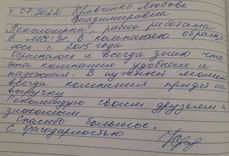 г. 07.2022 Любовь
Владимировна
Пенсионерка, ранее работала
в компанию обраща
юсь с 2015 года
Обращаюсь и всегда знаю что
эта компания удобная и
надежная. В нужный момент
всегда компания придет на
выручку
Рекомендую своим друзьям и
знакомым
Спасибо большое.
С благодарностью